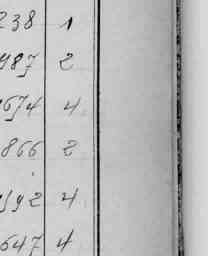 238 1
987 2
1674 4
866 2
1992 4
647 4